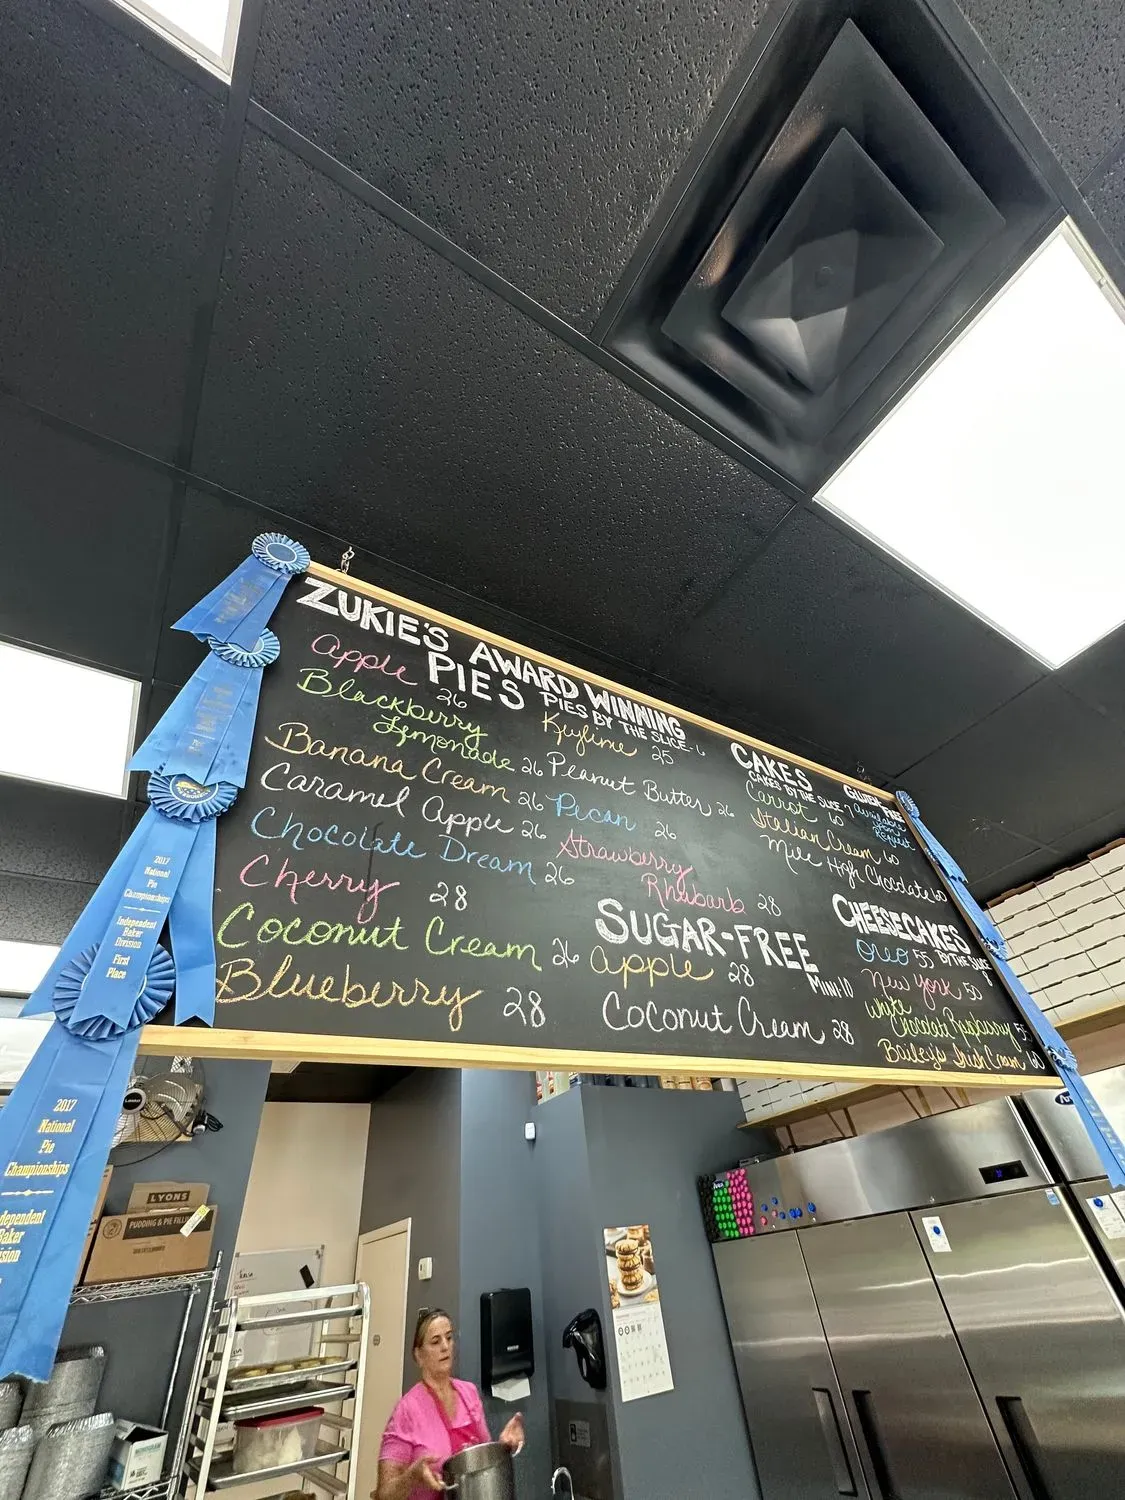 ZUKIE'S AWARD WINNING
PIES
PIES BY THE SLICE-6
Apple 26
Blackberry
Lemonade 26
Banana Cream 26
Caramel Apple 26
Chocolate Dream 26
Cherry 28
Coconut Cream 26
Blueberry 28
Keylime 25
Peanut Butter 26
Pecan 26
Strawberry
Rhubarb 28
SUGAR-FREE
MINI 10
Apple 28
Coconut Cream 28
CAKES
CAKES BY THE SLICE
Carrot 60
Italian Cream 60
Mile High Chocolate 60
GLUTEN FREE
CHEESECAKES
BY THE SLICE
8
Oreo 55
New York 50
White
Chocolate Raspberry 55
Bailey's Irish Cream 60
2017
National
Pie
Championships
Independent
Baker
Division
First
Place
2017
National
Pie
Championships
LYONS
PUDDING & PIE